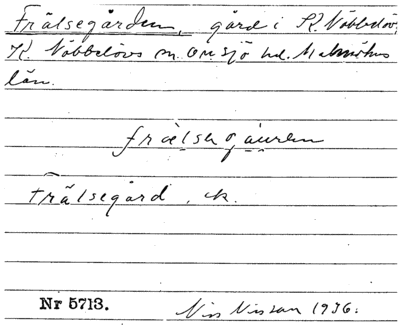 Frälsegården, gård i K. Nöbbelöv,
K. Nöbbelövs sn. Onsjö hd. Malmöhus
län.
frælsegáuren
Frälsegård, ek.
Nr 5713. Nils Nilsson 1936.